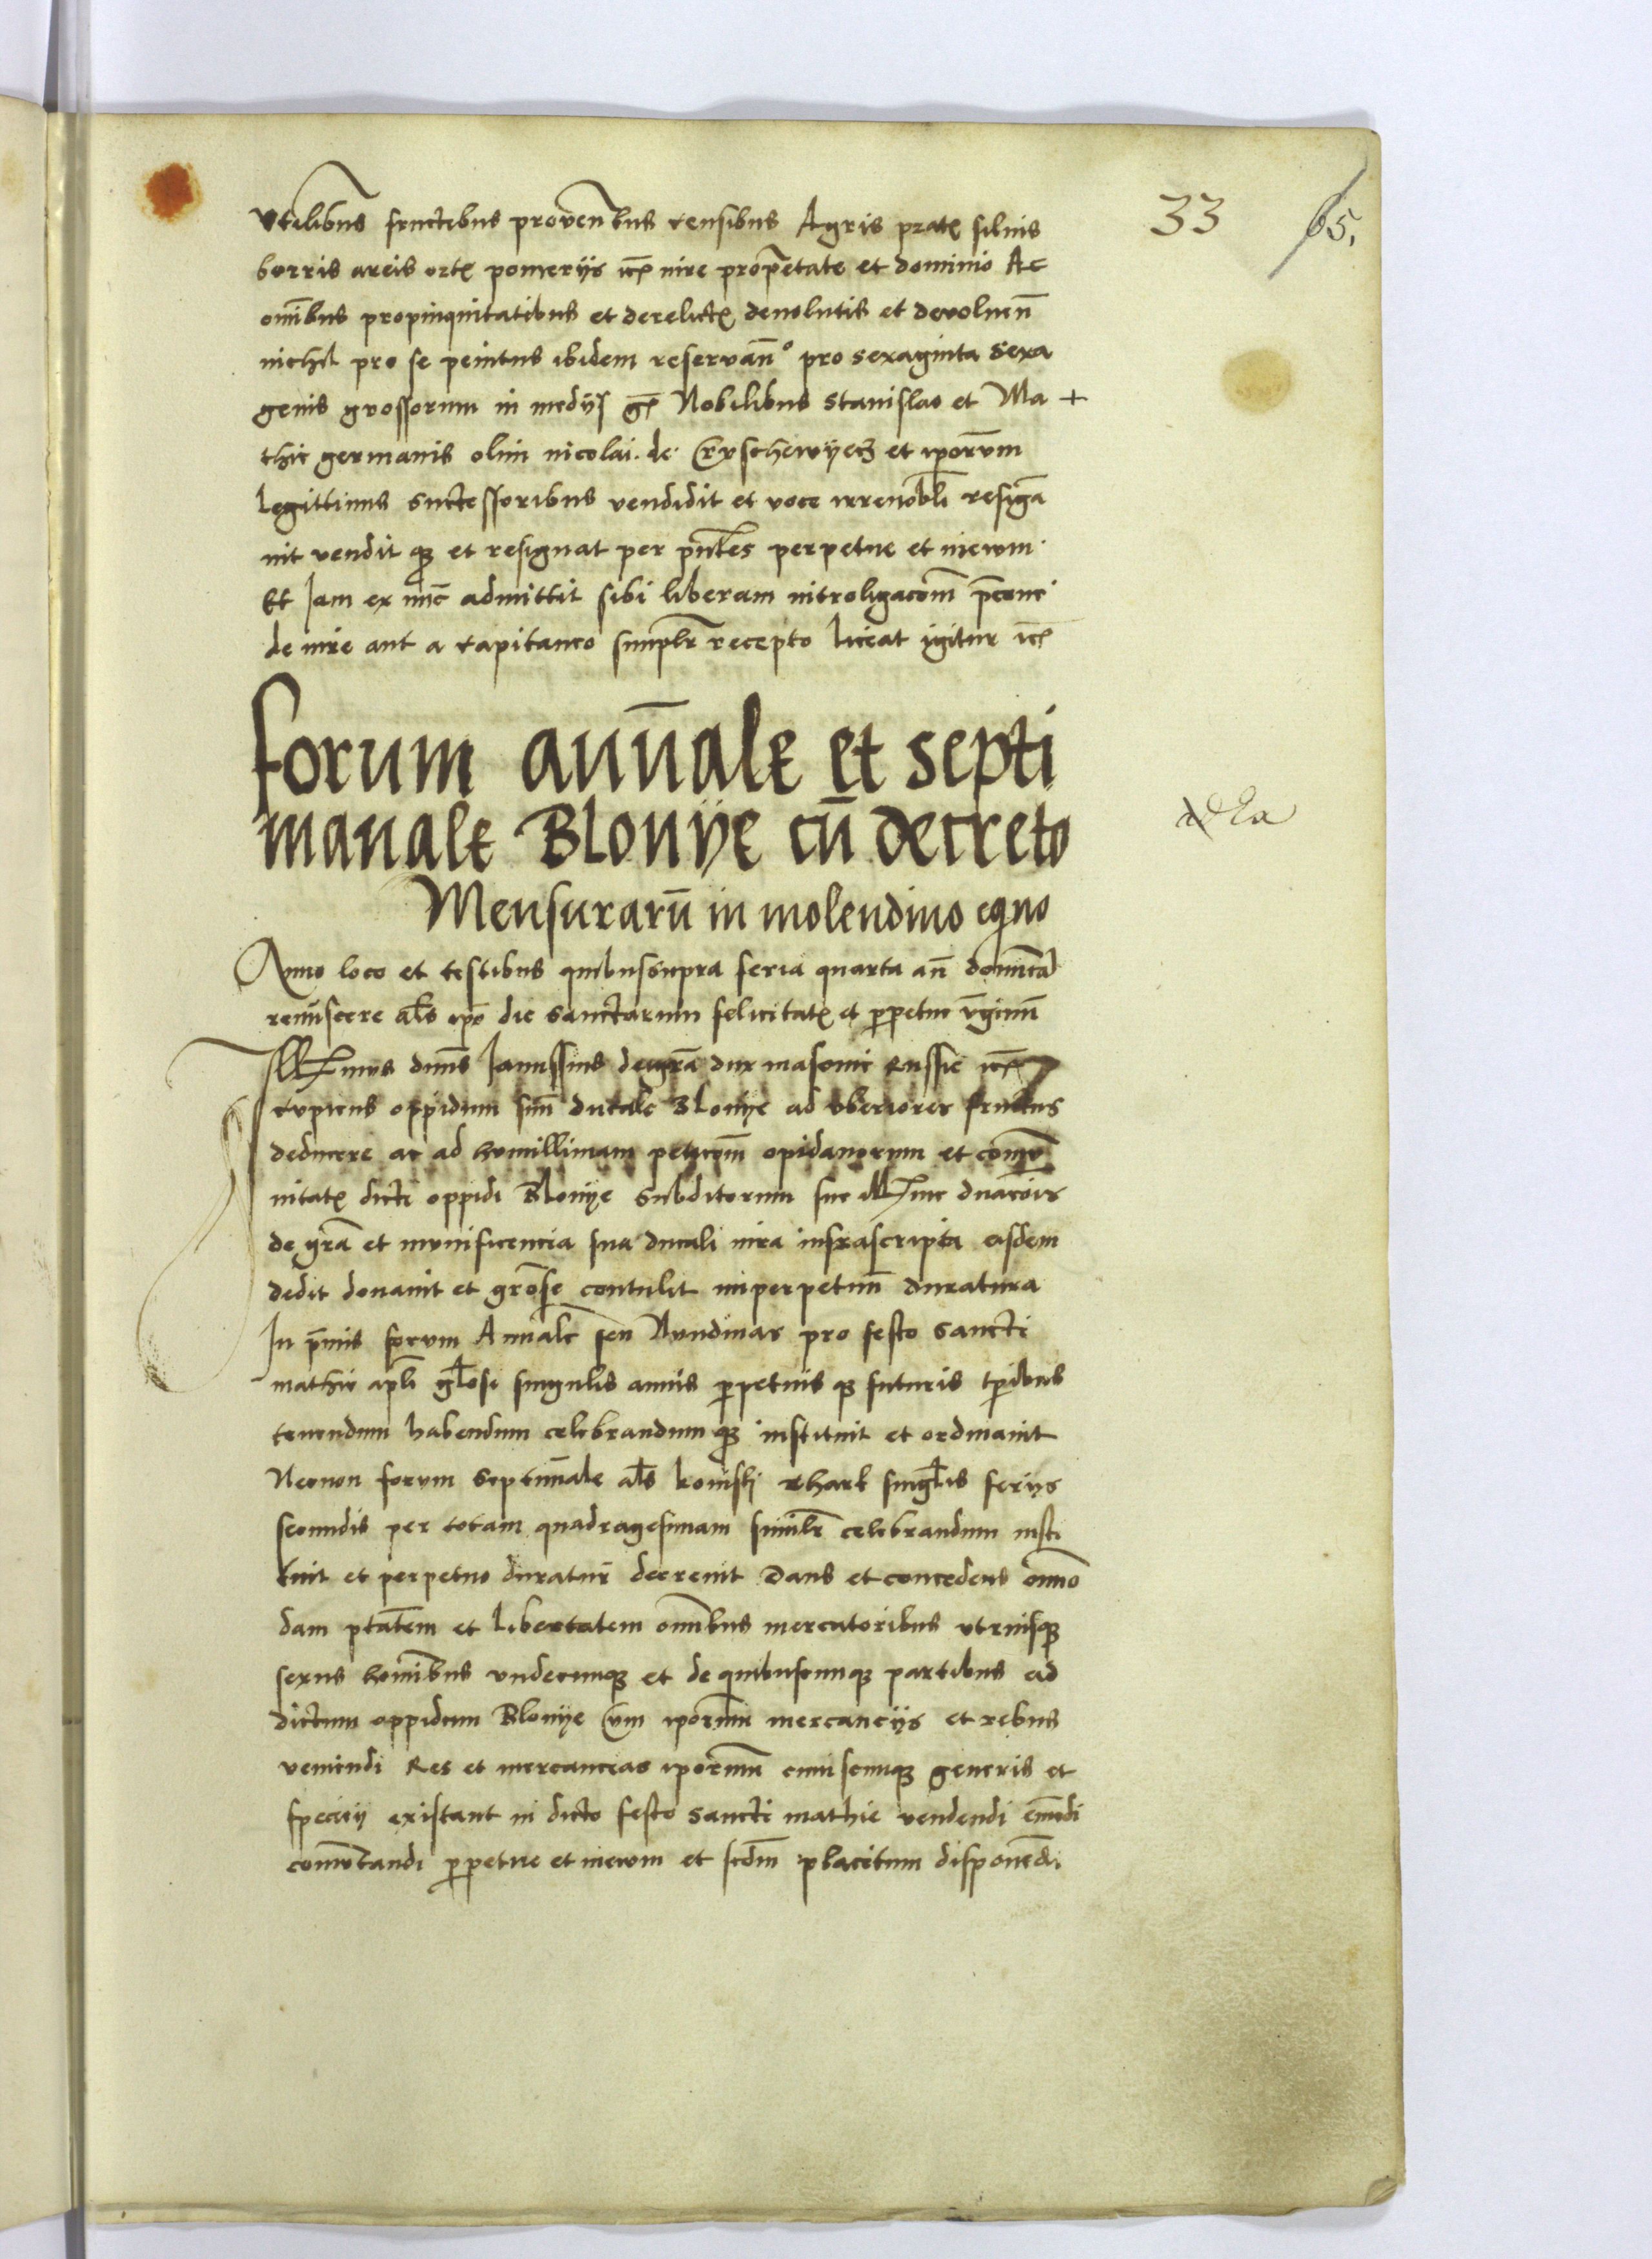 33 65.
Vtilibus fructibus proventibus censibus Agris prat silvis
borris areis ort pomeriis etc iure proprietate et dominio Ac
omibus propinquitatibus et derelict devolutis et devoluen
nichil pro se penitus ibidem reservan° pro sexaginta sexa
genis grossorum in mediis gr Nobilibus Stanislao et Ma +
thie germanis olim nicolai de et ipsorum
legittimis successoribus vendidit et voce irrevobli resigna
uit vendit que et resignat per pntes perpetue et inewm
Et Iam ex nunc admittit sibi liberam intro ligacom
de iure aut a capitaneo simplr recepto liceat igitur etc
forum annale et septi
manale Blonye cu decreto
Mensuraru in molendino equno
Anno loco et testibus quibussupra feria quarta an dominica
reminiscere als ipo die sanctarum felicitat et perpetue vginum
Illmus dnus Ianussius dei gra dux masovie Russie etc
cupiens oppidum suu ducale Blonye ad vberiores fructus
deducere ac ad humillimam peticom opidanorum et comu
nitat dicti oppidi Blonye subditorum sue Illme dnacois
de gra et munificencia sua ducali iura infrascripta eisdem
dedit donavit et grose contulit inperpetuu duratura
In pmis forum Annale seu Nundinas pro festo sancti
mathie apli glosi singulis annis perpetuis que futuris tpribus
tenendum habendum celebrandum que instituit et ordinavit
Necnon forum septimale als konski thark singlis feriis
secundis per totam quadragesimam similr celebrandum insti
tuit et perpetuo duratur decrevit Dans et concedens omo
dam ptatem et libertatem omibus mercatoribus vtriusque
sexus hominibus vndecunque et de quibuscunque partibus ad
dictum oppidum Blonye cum ipsorum mercanciis et rebus
veniendi Res et mercancias ipsorum cuiuscunque generis et
speciei existant in dicto festo sancti mathie vendendi emendi
comutandi perpetue et inewm et scdm placitum disponendi